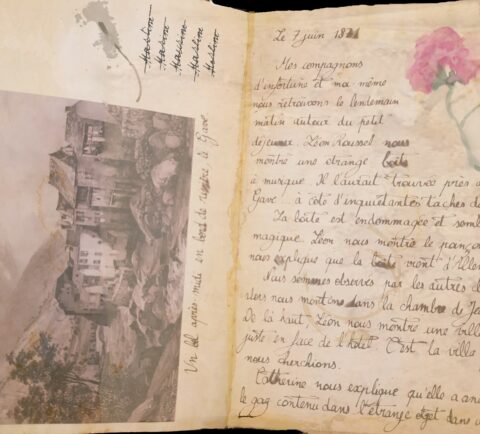 Maslino
Masino
Massino
Masino
Maslino
Un bel après midi en bord de rivière le Gave
Le 7 juin 1821
Mes compagnons
d'infortune et moi même
nous retrouvons le lendemain
matin autour du petit
déjeuner. Léon Roussel nous
montre une étrange boîte
à musique. Il l'aurait trouvée près
Gave à côté d'inquiétantes taches
La boîte est endommagée et
magique. Léon nous montre le
nous explique que la boîte vient
Nous sommes observés par les autres
alors nous montons dans la chambre de
De là haut, Léon nous montre une
juste en face de l'hôtel. C'est la villa
nous cherchions.
Catherine nous explique qu'elle a
le gag contenu dans l'étrange objet dans